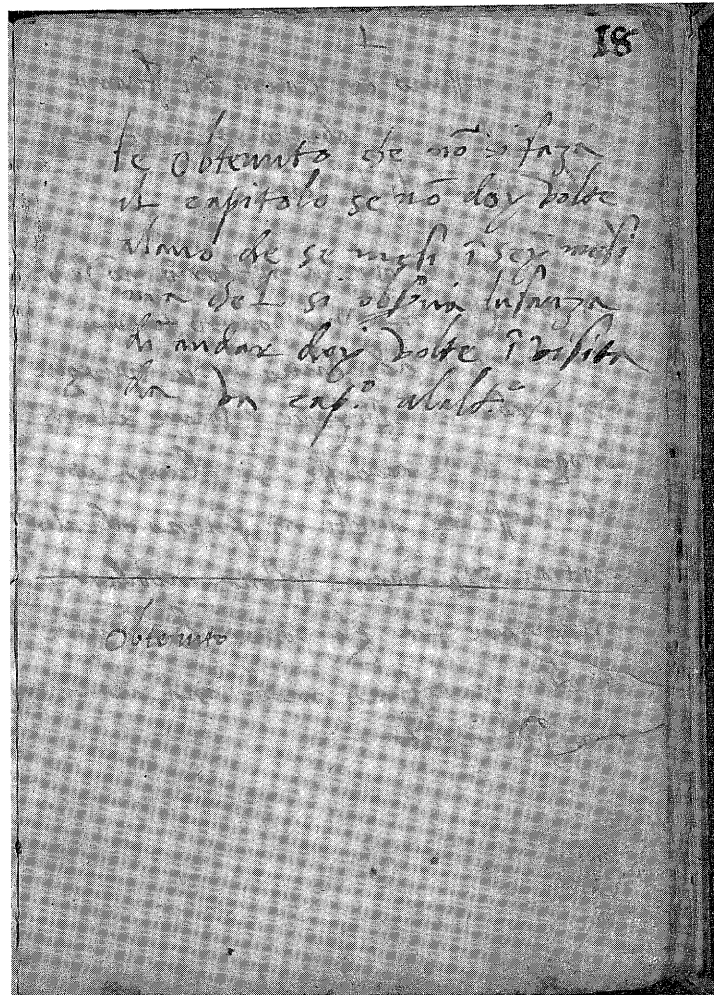 18
le obtenuto de nō si faza
il capitolo se nō doy volte
alano de se mesi ī sey mesi
ma del si obs̄va lusanza
di andar doy volte ī visita
da vn cap.º alalt.º
obtenuto